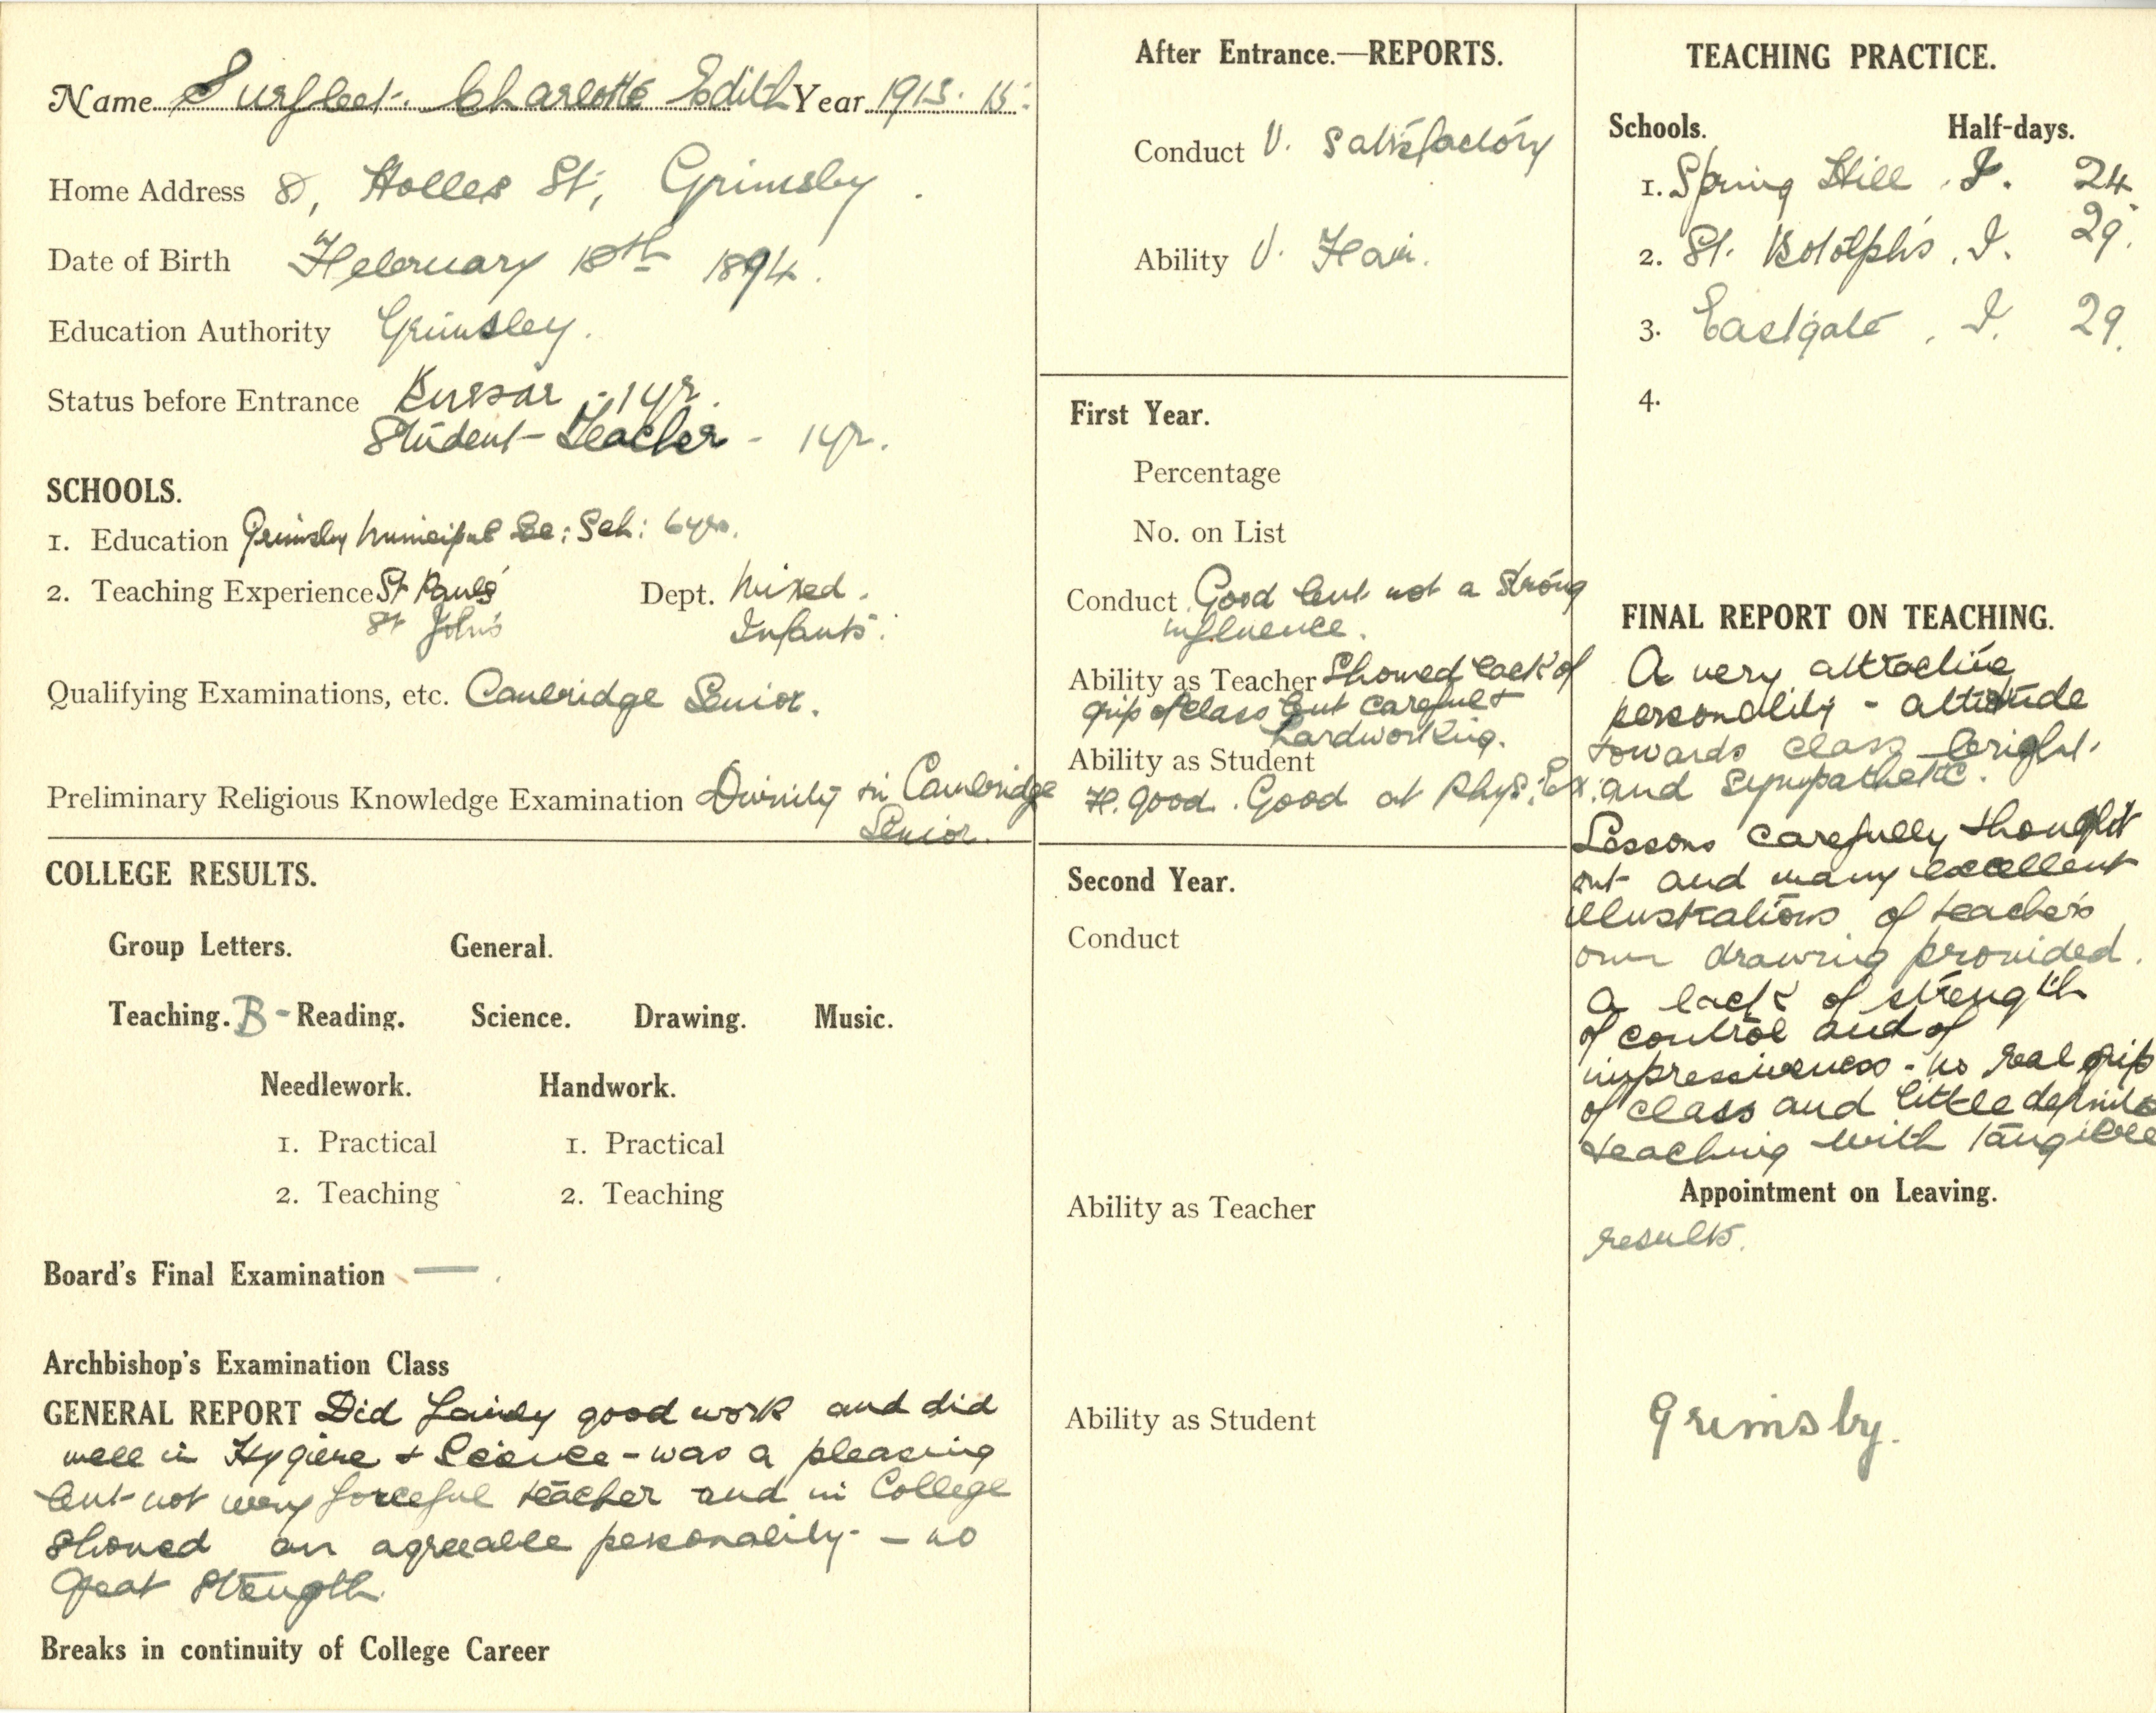 Name Surfleet. Charlotte Edith Year 1913. 15.
Home Address 8, Holles St, Grimsby.
Date of Birth February 18th 1894.
Education Authority Grimsby.
Status before Entrance Bursar - 1 yr.
Student-Teacher - 1 yr.
SCHOOLS.
1. Education Grimsby Municipal Se: Sch: 6 yrs.
2. Teaching Experience St Paul's Dept. Mixed.
St John's Infants.
Qualifying Examinations, etc. Cambridge Senior.
Preliminary Religious Knowledge Examination Divinity in Cambridge
Senior.
COLLEGE RESULTS.
Group Letters. General.
Teaching. B- Reading. Science. Drawing. Music.
Needlework. Handwork.
1. Practical 1. Practical
2. Teaching 2. Teaching
Board's Final Examination — .
Archbishop's Examination Class
GENERAL REPORT Did fairly good work and did
well in Hygiene + Science - was a pleasing
but not very forceful teacher and in College
showed an agreeable personality - no
great strength.
Breaks in continuity of College Career
After Entrance.—REPORTS.
Conduct V. Satisfactory
Ability V. Fair.
First Year.
Percentage
No. on List
Conduct Good but not a strong
influence.
Ability as Teacher Showed lack of
grip of class but careful +
hardworking.
Ability as Student
F. good. Good at Phys: Ex:
Second Year.
Conduct
Ability as Teacher
Ability as Student
TEACHING PRACTICE.
Schools. Half-days.
1. Spring Hill. I. 24
2. St. Botolph's. I. 29.
3. Eastgate, I. 29.
4.
FINAL REPORT ON TEACHING.
A very attractive
personality - attitude
towards class bright
and sympathetic.
Lessons carefully thought
out and many excellent
illustrations of teacher's
own drawing provided.
A lack of strength
of control and of
impressiveness - no real grip
of class and little definite
teaching with tangible
Appointment on Leaving.
results.
Grimsby.